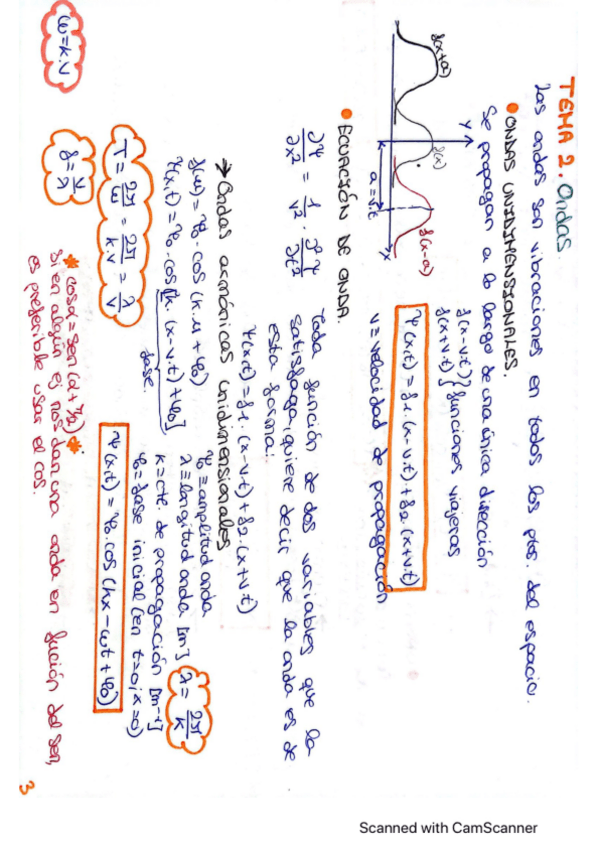 TEMA 2. Ondas
Las ondas son vibraciones en todos los ptos. del espacio.
• ONDAS UNIDIMENSIONALES.
Se propagan a lo largo de una única dirección
f(x-v.t) } funciones viajeras
f(x+v.t)
Ψ(x,t) = f1.(x-v.t) + f2.(x+v.t)
v = velocidad de propagación
f(x+a)
f(x)
f(x-a)
Y
X
a = v.t
• ECUACIÓN DE ONDA.
∂²Ψ/∂x² = 1/v² · ∂²Ψ/∂t²
Toda función de dos variables que la
satisfaga, quiere decir que la onda es de
esta forma:
Ψ(x,t) = f1.(x-v.t) + f2.(x+v.t)
→ Ondas armónicas unidimensionales
f(u) = Ψ0.cos (k.u + φ0)
Ψ(x,t) = Ψ0.cos[k.(x-v.t) + φ0]
fase.
Ψ0 = amplitud onda
λ = longitud onda [m]
λ = 2π/k
k = cte. de propagación [m-1]
φ0 = fase inicial (en t=0; x=0)
T = 2π/ω = 2π/k.v = λ/v
Ψ(x,t) = Ψ0.cos(kx - ωt + φ0)
ω = k.v
f = v/λ
* cosα = sen(α + π/2) *
Si en algún ej nos dan una onda en fución del sen,
es preferible usar el cos.
3
Scanned with CamScanner